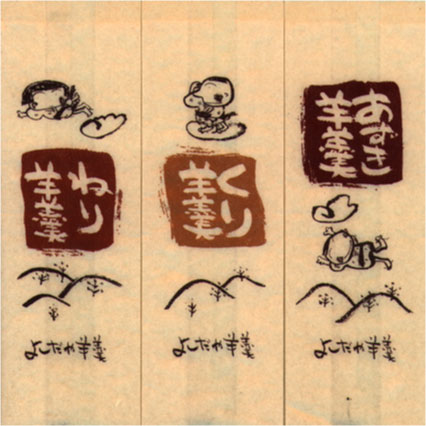 ねり
羊羹
よしだや羊羹
くり
羊羹
よしだや羊羹
あずき
羊羹
よしだや羊羹